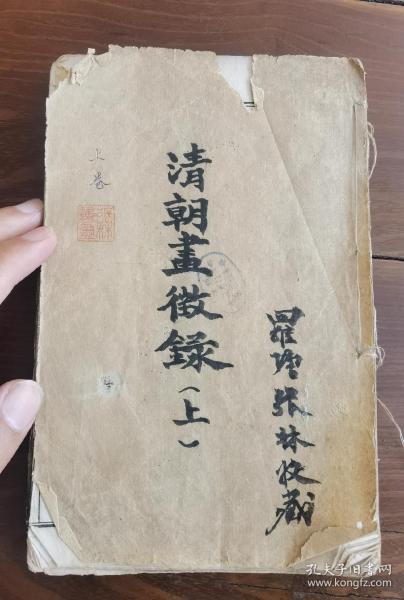 清朝畫徵錄(上)
上卷
張林收藏
孔夫子旧书网
www.kongfz.com